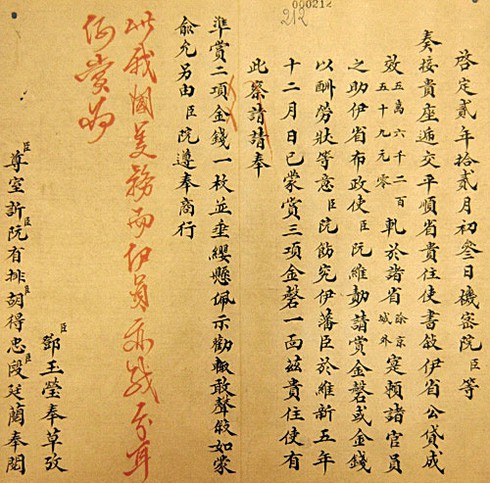 000212
212
啓定貳年拾貳月初叁日機密院臣等
奏接貴座遞交平順省貴住使書敍伊省公貸成
效五萬六千二百五十九元零軋於諸省除京城外寔賴諸官員
之助伊省布政使臣阮維勛請賞金磬或金錢
以酬勞狀等意臣院飭究伊藩臣於維新五年
十二月日已蒙賞三項金磬一面茲貴住使有
此察請請奉
準賞二項金錢一枚並垂纓懸佩示勸輙敢聲敍如蒙
俞允另由臣院遵奉商行
此我國美務而伊員亦幾分耳
何賞為
臣鄧玉瑩奉草攷
臣尊室訢臣阮有排臣胡得忠臣段廷蕑奉閱